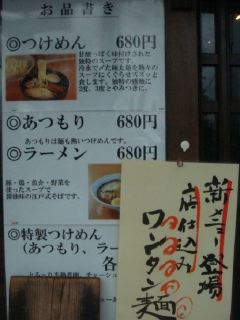 お品書き
◎つけめん 680円
甘酸っぱく味付けされた
独特のスープです。
冷水で〆た極太麺を熱々の
スープにくぐらせズズッと
食します。独特の感触に
2度、3度とやみつきに。
◎あつもり 680円
あつもりは麺も熱いつけめんです。
◎ラーメン 680円
豚・鶏・魚介・野菜を
使ったスープで
醤油味の江戸式そばです。
◎特製つけめん
(あつもり、ラー
各
チャーシュ
新メニュー登場
店仕込み
ワンタン麺